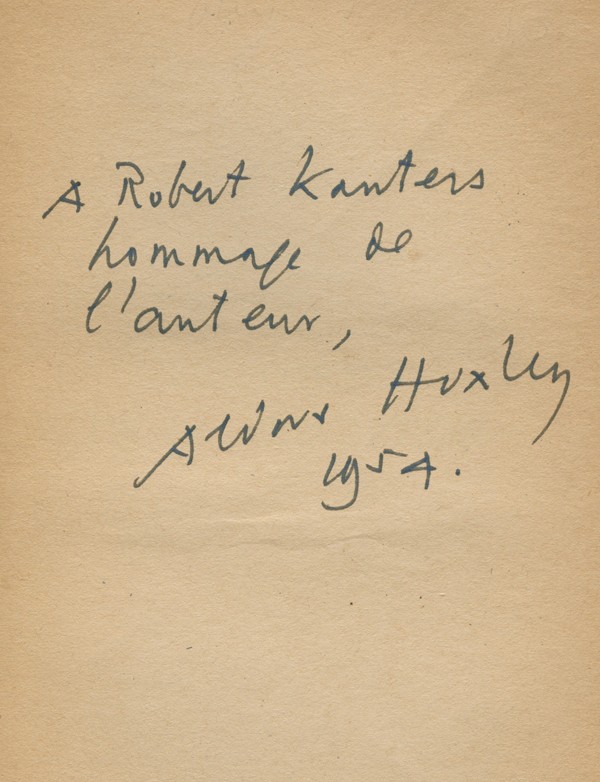 A Robert Kanters
hommage de
l'auteur,
Aldous Huxley
1954.